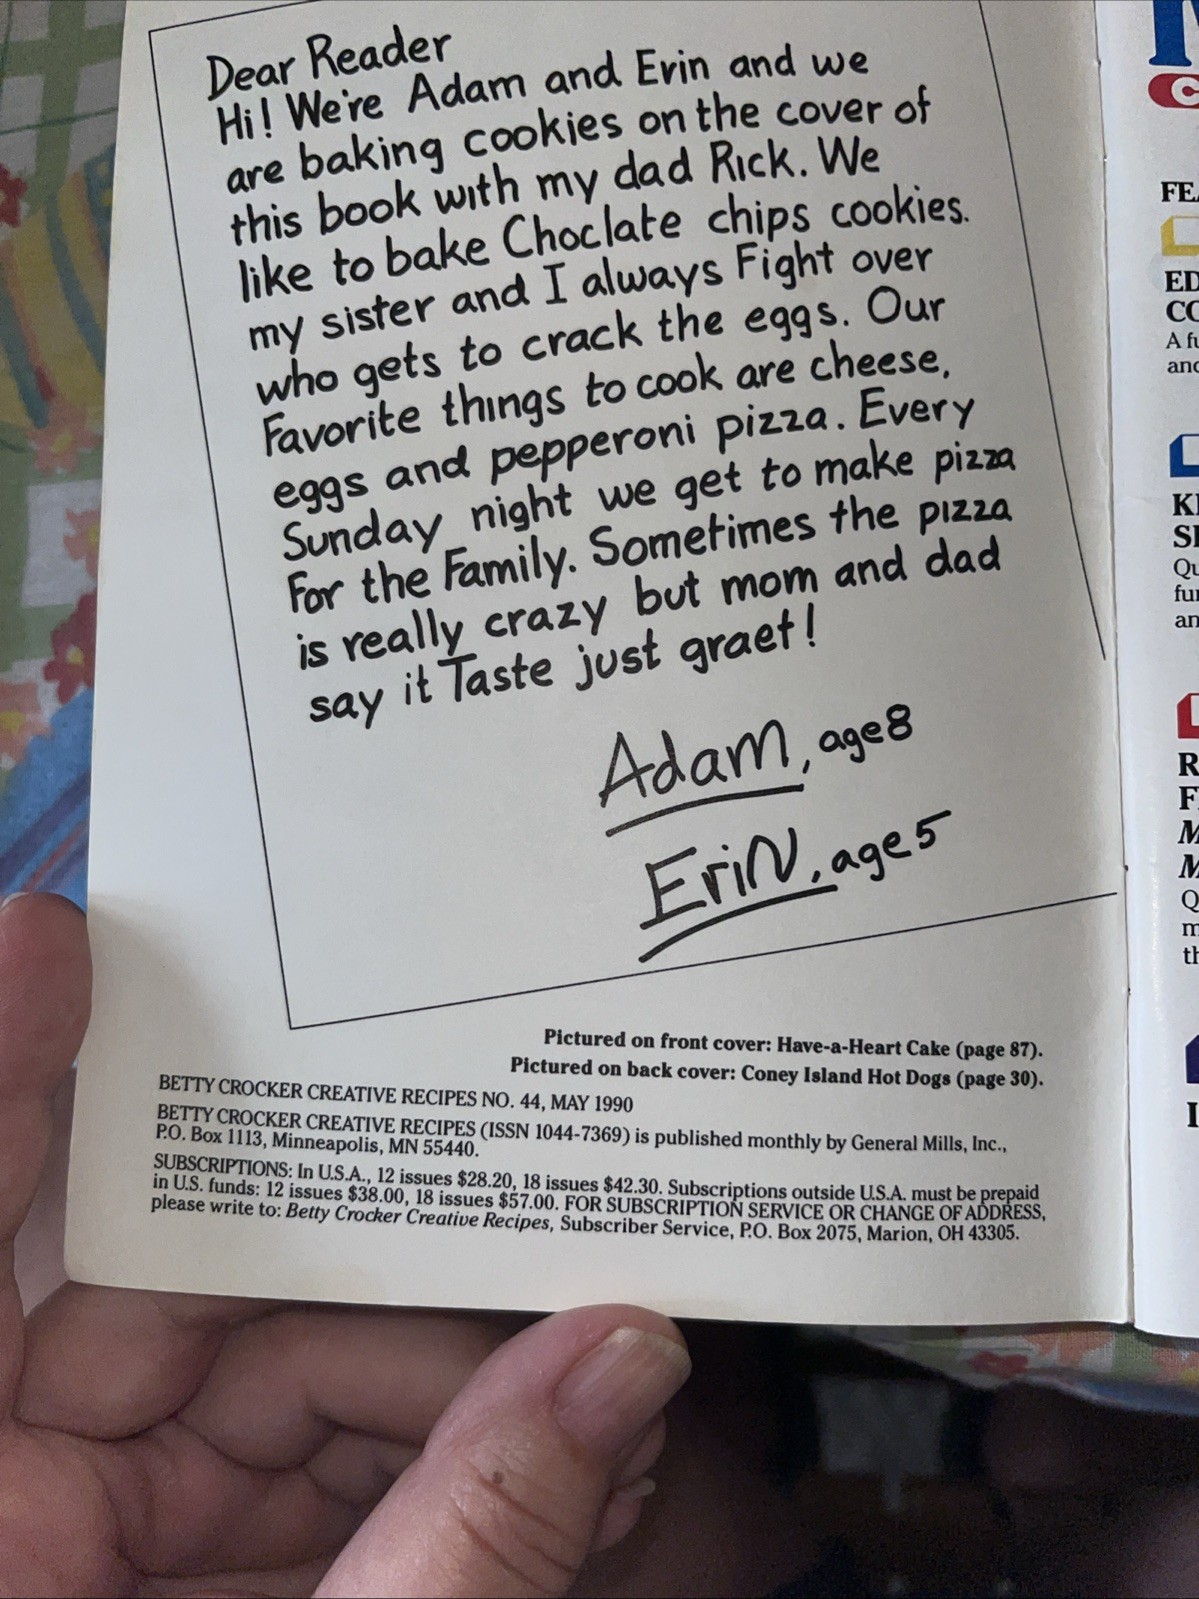 Dear Reader
Hi! We're Adam and Erin and we
are baking cookies on the cover of
this book with my dad Rick. We
like to bake Choclate chips cookies.
my sister and I always Fight over
who gets to crack the eggs. Our
Favorite things to cook are cheese,
eggs and pepperoni pizza. Every
Sunday night we get to make pizza
For the Family. Sometimes the pizza
is really crazy but mom and dad
say it Taste just graet!
Adam, age 8
EriN, age 5
Pictured on front cover: Have-a-Heart Cake (page 87).
Pictured on back cover: Coney Island Hot Dogs (page 30).
BETTY CROCKER CREATIVE RECIPES NO. 44, MAY 1990
BETTY CROCKER CREATIVE RECIPES (ISSN 1044-7369) is published monthly by General Mills, Inc.,
P.O. Box 1113, Minneapolis, MN 55440.
SUBSCRIPTIONS: In U.S.A., 12 issues $28.20, 18 issues $42.30. Subscriptions outside U.S.A. must be prepaid
in U.S. funds: 12 issues $38.00, 18 issues $57.00. FOR SUBSCRIPTION SERVICE OR CHANGE OF ADDRESS,
please write to: Betty Crocker Creative Recipes, Subscriber Service, P.O. Box 2075, Marion, OH 43305.